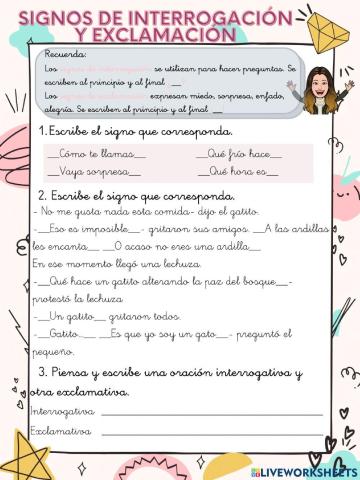 SIGNOS DE INTERROGACIÓN
Y EXCLAMACIÓN
Recuerda:
Los signos de interrogación se utilizan para hacer preguntas. Se
escriben al principio y al final __
Los signos de exclamación expresan miedo, sorpresa, enfado,
alegría. Se escriben al principio y al final __
1. Escribe el signo que corresponda.
__Cómo te llamas__ __Qué frío hace__
__Vaya sorpresa__ __Qué hora es__
2. Escribe el signo que corresponda.
- No me gusta nada esta comida- dijo el gatito.
-__Eso es imposible__- gritaron sus amigos. __A las ardillas
les encanta__ __O acaso no eres una ardilla__
En ese momento llegó una lechuza.
-__Qué hace un gatito alterando la paz del bosque__-
protestó la lechuza
-__Un gatito__ gritaron todos.
-__Gatito__ __Es que yo soy un gato__- preguntó el
pequeño.
3. Piensa y escribe una oración interrogativa y
otra exclamativa.
Interrogativa ____________________
Exclamativa ____________________
LIVEWORKSHEETS